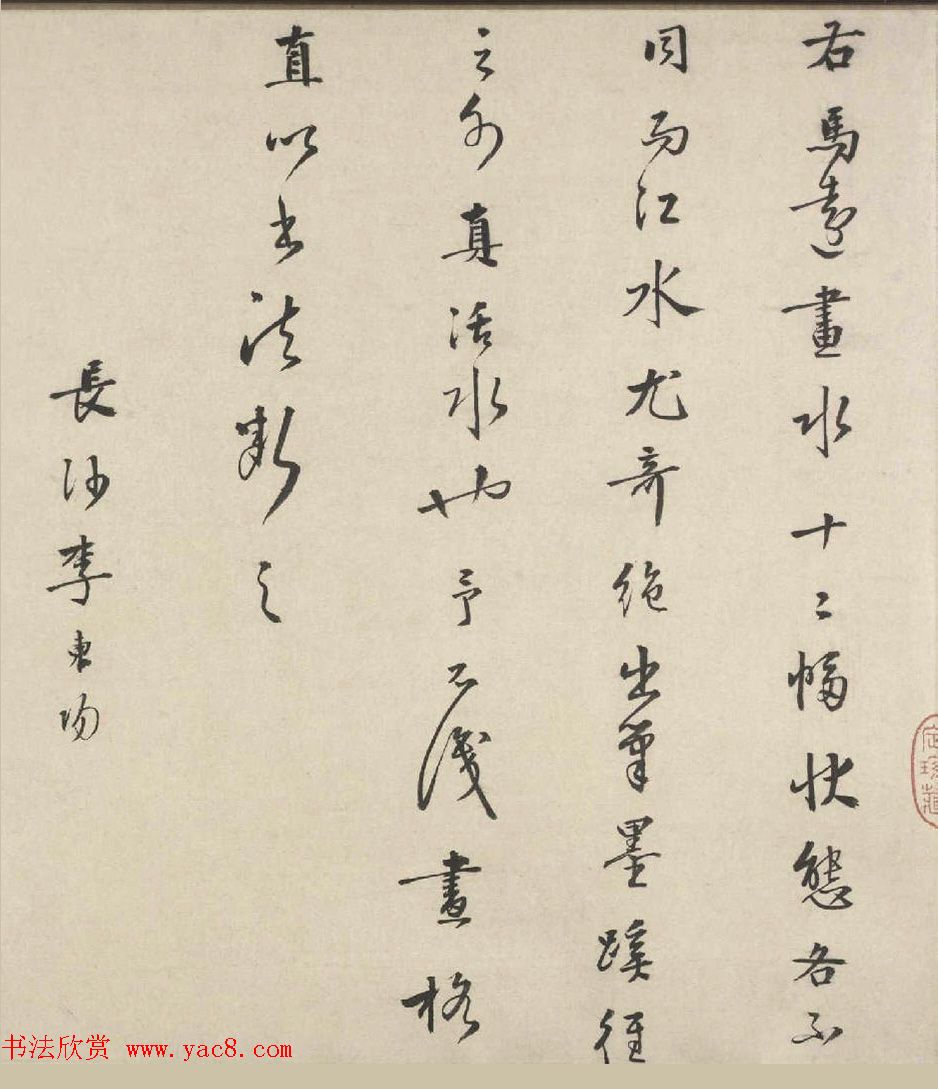 右馬遠畫水十二幅狀態各不
同而江水尤奇絕出筆墨蹊徑
之外真活水也予不識畫格
直以書法斷之
長沙李東陽
書法欣赏 www.yac8.com